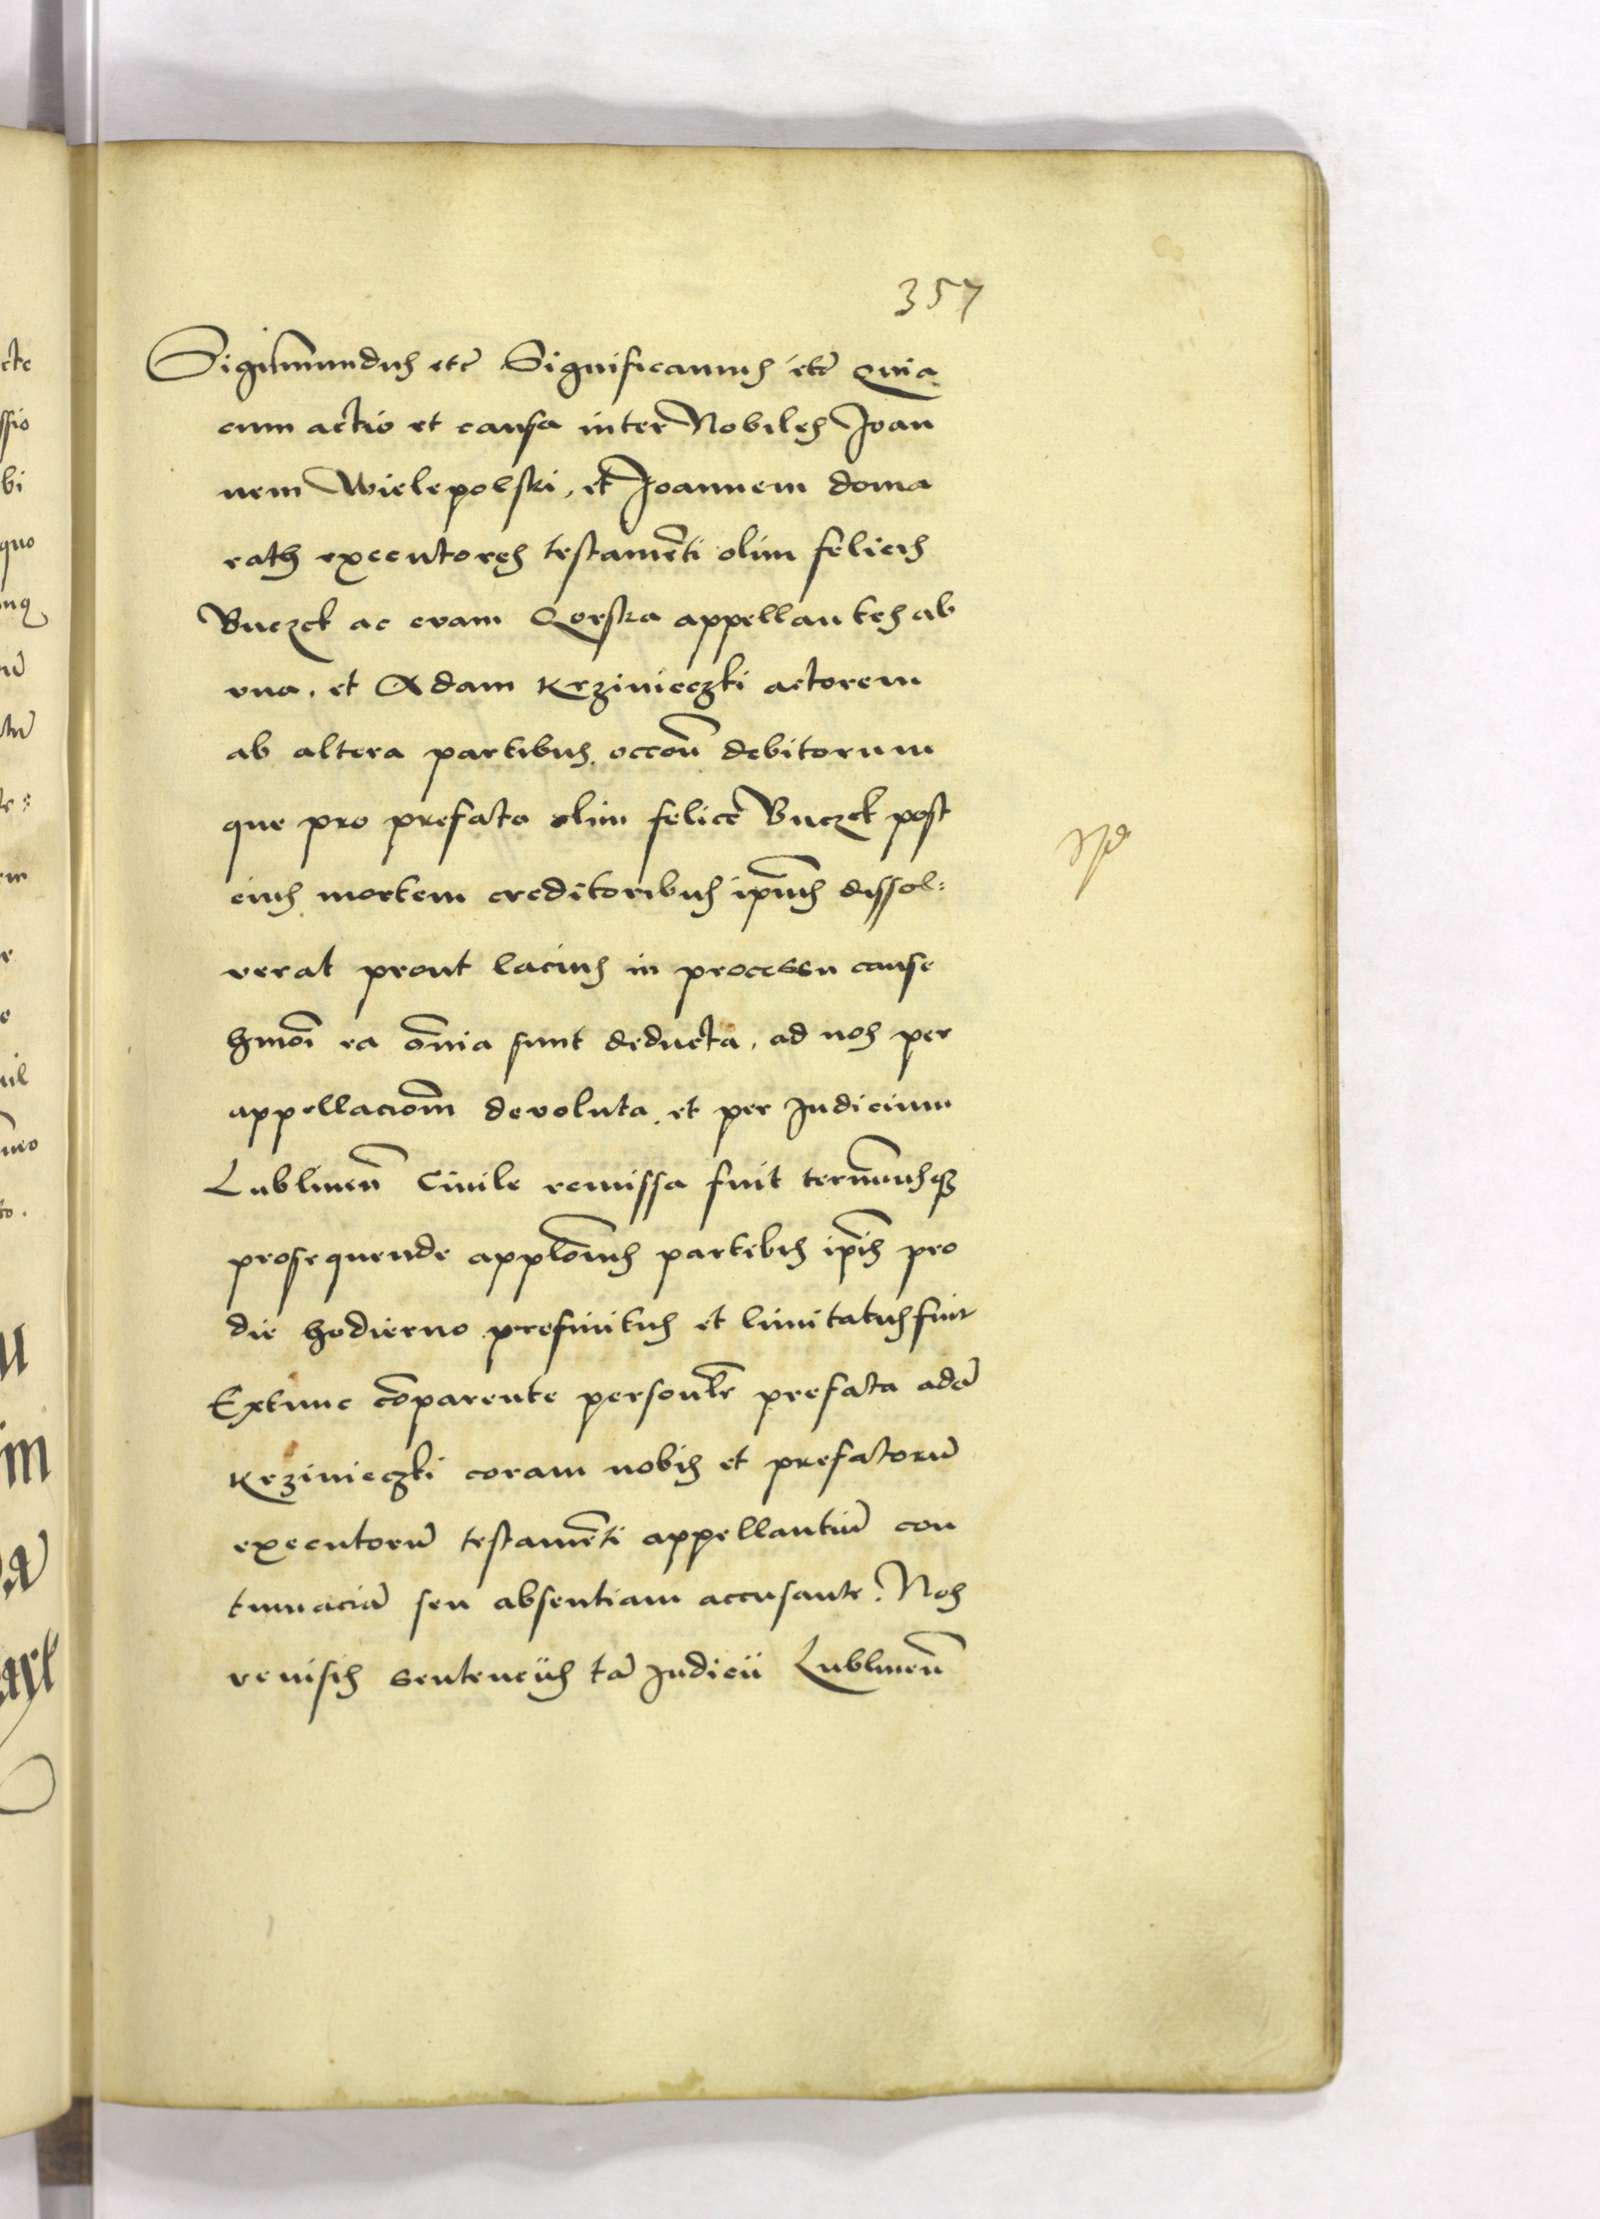 357
Sigismundus etc̄ Significamus etc̄ Quia
cum actio et causa inter Nobiles Joan
nem Wielepolski, et Joannem doma
rath executores testamēti olim felicis
Buczek ac euam Gorska appellantes ab
vna. et Adam Krzinieczki actorem
ab altera partibus, occōn debitorum
que pro prefato olim felice Buczek post
eius mortem creditoribus ipius dissol:
verat prout lacius in processu cause
hmōi ea ōnia sunt deducta, ad nos per
appellaciom̄ devoluta, et per Judicium
Lublinen̄ Ciuile remissa fuit termīusqʒ
prosequende applōnis partibus ip̄is pro
die hodierno prefinitus et limitatus fuit
Extunc cōparente person̄lr prefato adā
Krzinieczki coram nobis et prefatorū
executorū testamēti appellantiū con
tumaciā seu absentiam accusante. Nos
reuisis sentencijs tā Judicij Lublinen̄